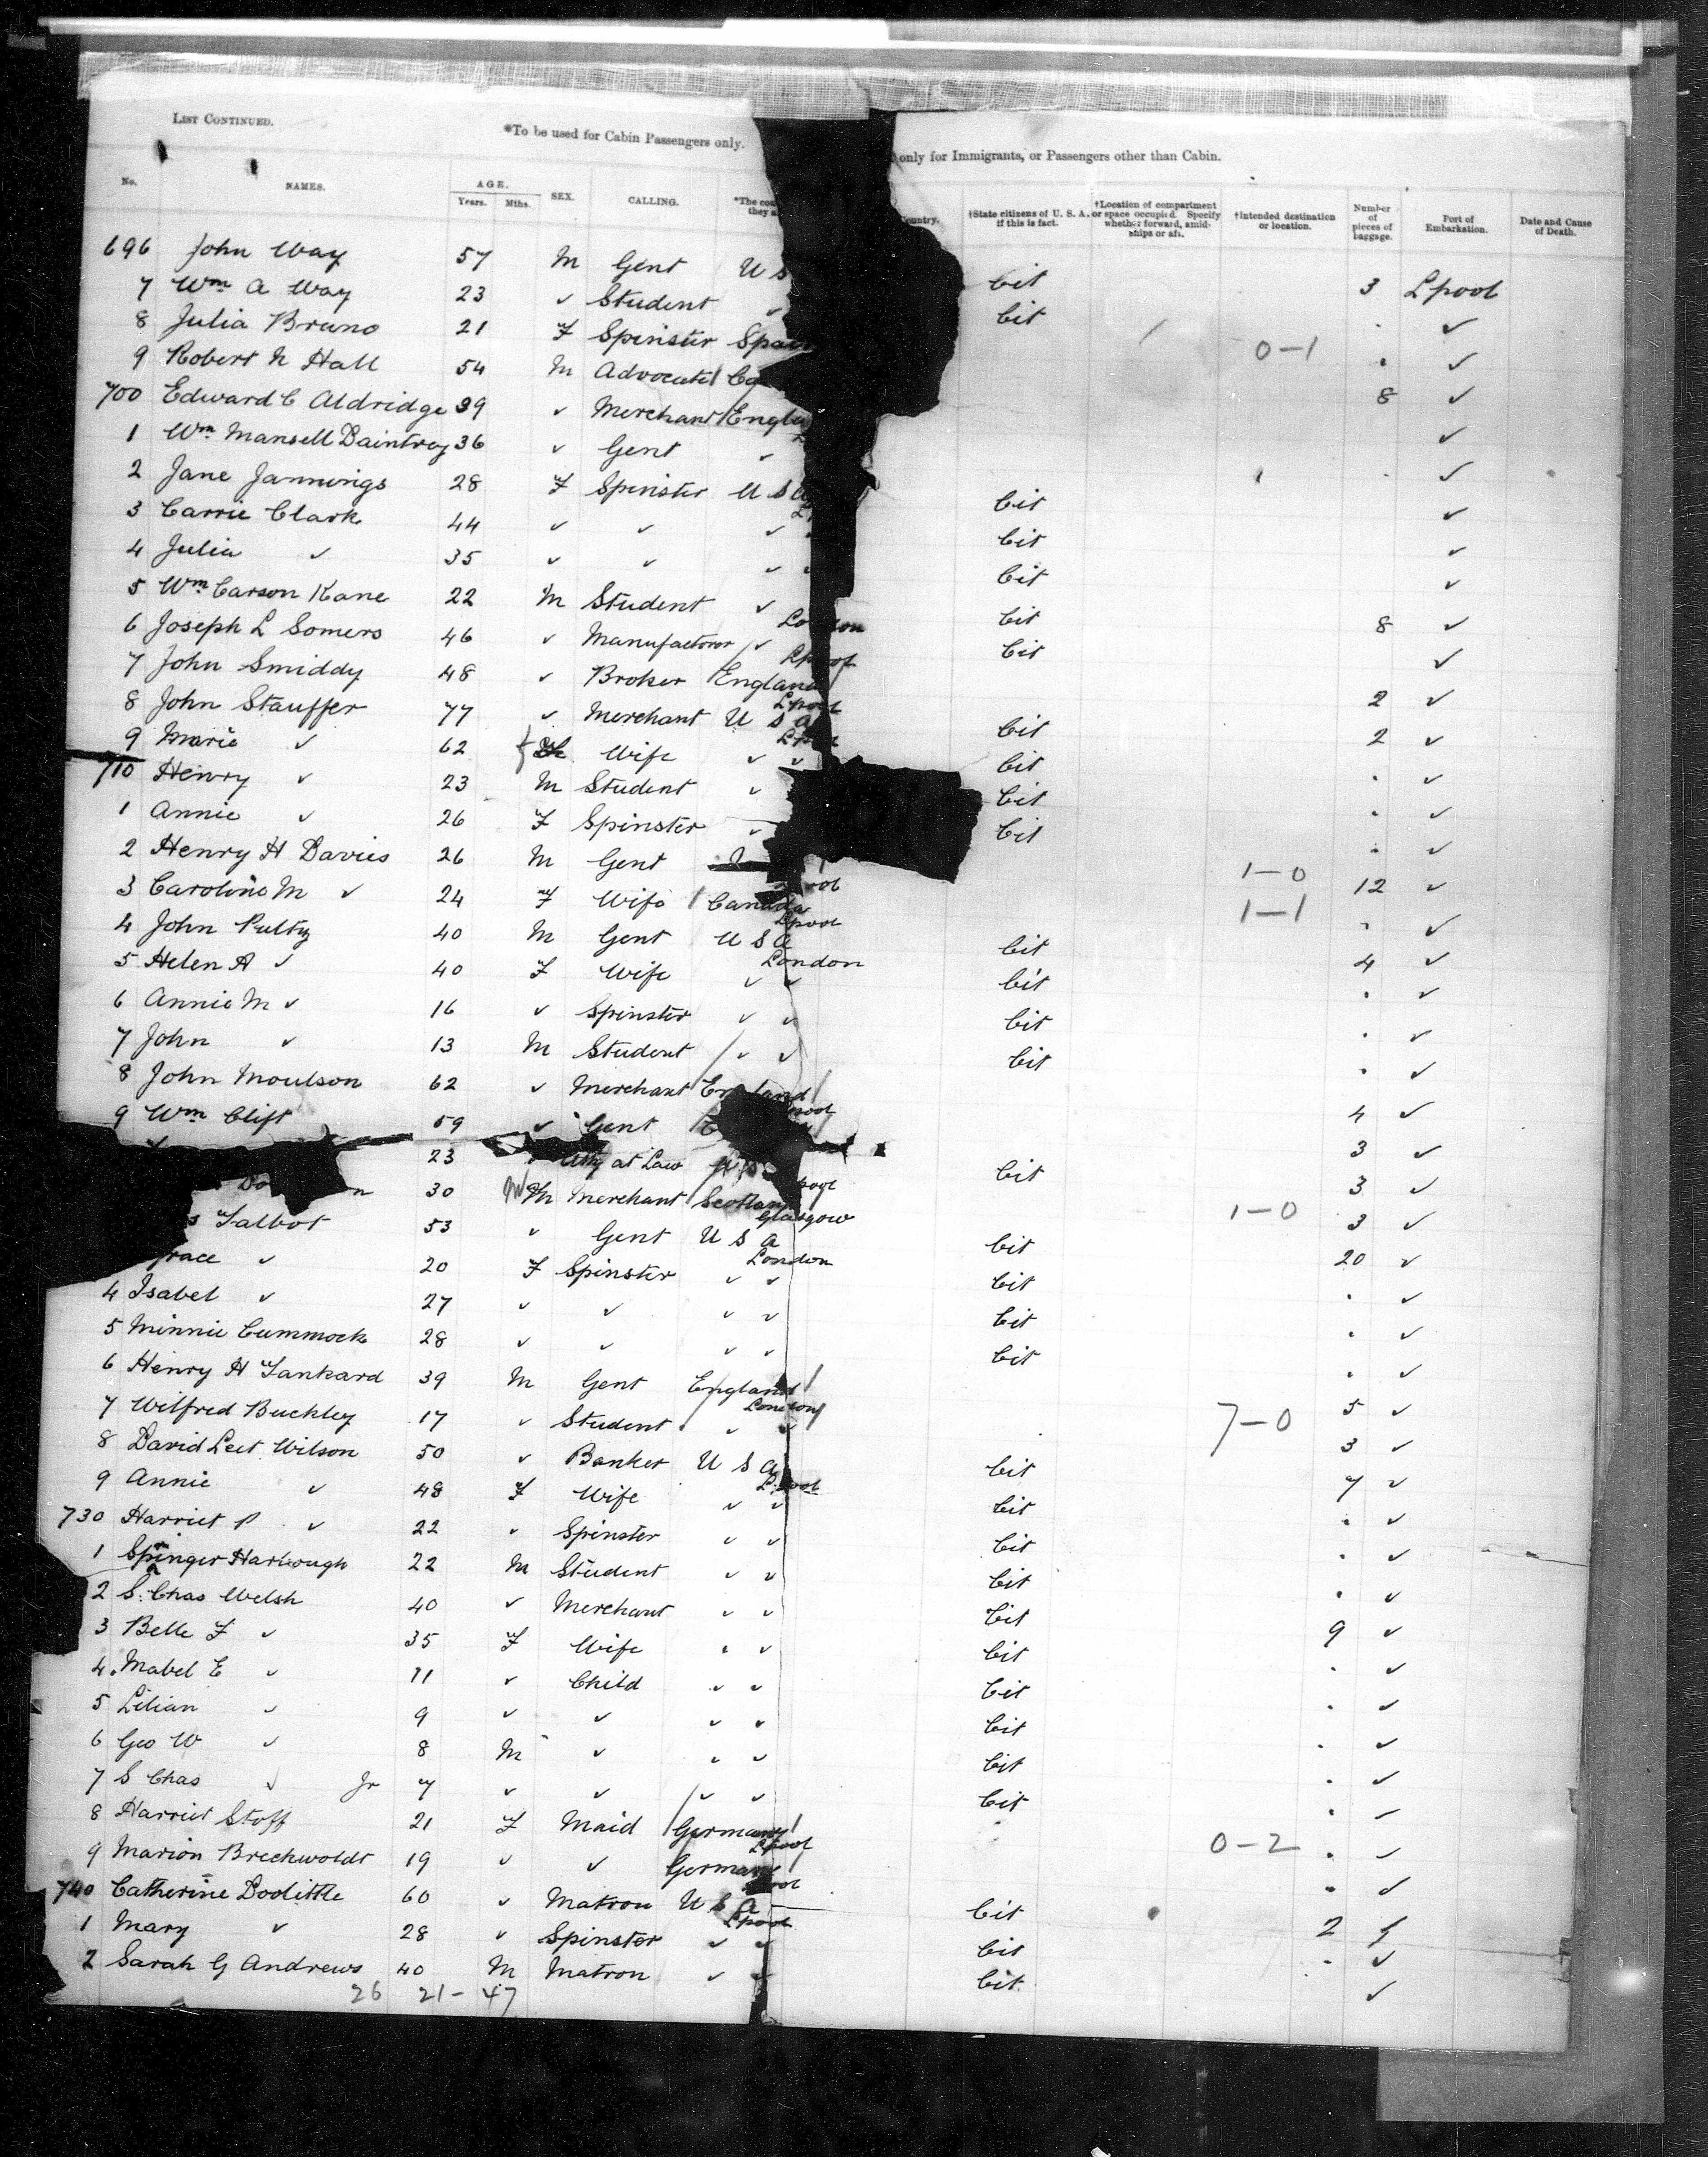 LIST CONTINUED.
*To be used for Cabin Passengers only.
only for Immigrants, or Passengers other than Cabin.
No. NAMES. AGE. Years. Mths. SEX. CALLING. *The they Country. †State citizens of U. S. A. if this is fact. †Location of compartment or space occupied. Specify whether forward, amidships or aft. †Intended destination or location. Number of pieces of baggage. Port of Embarkation. Date and Cause of Death.
696 John Way 57 M Gent U S Cit 3 Lpool
7 Wm A Way 23 ✓ Student ✓ Cit . ✓
8 Julia Bruno 21 F Spinster 0-1 . ✓
9 Robert N Hall 54 M Advocate 8 ✓
700 Edward C Aldridge 39 ✓ Merchant ✓
1 Wm Mansell Daintrey 36 ✓ Gent ✓ . ✓
2 Jane Jannings 28 F Spinster U S A Cit ✓
3 Carrie Clark 44 ✓ ✓ ✓ Cit ✓
4 Julia ✓ 35 ✓ ✓ ✓ Cit ✓
5 Wm Carson Kane 22 M Student ✓ Cit 8 ✓
6 Joseph L Somers 46 ✓ Manufacturer ✓ London Cit ✓
7 John Smiddy 48 ✓ Broker England Lpool 2 ✓
8 John Stauffer 77 ✓ Merchant U S A Lpool Cit 2 ✓
9 Marie ✓ 62 F Wife ✓ ✓ Cit . ✓
710 Henry ✓ 23 M Student ✓ Cit . ✓
1 Annie ✓ 26 F Spinster ✓ Cit . ✓
2 Henry H Davies 26 M Gent 1-0 12 ✓
3 Caroline M ✓ 24 F Wife Canada 1-1 . ✓
4 John Pultz 40 M Gent U S A Lpool Cit 4 ✓
5 Helen A ✓ 40 F Wife London ✓ ✓ Cit . ✓
6 Annie M ✓ 16 ✓ Spinster ✓ ✓ Cit . ✓
7 John ✓ 13 M Student ✓ ✓ Cit . ✓
8 John Moulson 62 ✓ Merchant England 4 ✓
9 Wm Clift 59 ✓ Gent 3 ✓
23 Atty at Law Cit 3 ✓
30 M Merchant Scotland Glasgow 1-0 3 ✓
Talbot 53 ✓ Gent U S A London Cit 20 ✓
race ✓ 20 F Spinster ✓ ✓ Cit . ✓
4 Isabel ✓ 27 ✓ ✓ ✓ ✓ Cit . ✓
5 Minnie Cummock 28 ✓ ✓ ✓ ✓ Cit . ✓
6 Henry H Tankard 39 M Gent England London 5 ✓
7 Wilfred Buckley 17 ✓ Student ✓ ✓ 7-0 3 ✓
8 David Leet Wilson 50 ✓ Banker U S A Lpool Cit 7 ✓
9 Annie ✓ 48 F Wife ✓ ✓ Cit . ✓
730 Harriet P ✓ 22 ✓ Spinster ✓ ✓ Cit . ✓
1 Springer Harbough 22 M Student ✓ ✓ Cit . ✓
2 S. Chas Welsh 40 ✓ Merchant ✓ ✓ Cit 9 ✓
3 Belle F ✓ 35 F Wife ✓ ✓ Cit . ✓
4 Mabel E ✓ 11 ✓ Child ✓ ✓ Cit . ✓
5 Lilian ✓ 9 ✓ ✓ ✓ ✓ Cit . ✓
6 Geo W ✓ 8 M ✓ ✓ ✓ Cit . ✓
7 S Chas ✓ Jr 7 ✓ ✓ ✓ ✓ Cit . ✓
8 Harriet Stoff 21 F Maid Germany Lpool 0-2 . ✓
9 Marion Brechwoldt 19 ✓ ✓ Germany . ✓
740 Catherine Doolittle 60 ✓ Matron U S A Lpool Cit 2 ✓
1 Mary ✓ 28 ✓ Spinster ✓ ✓ Cit . ✓
2 Sarah G Andrews 40 M Matron ✓ ✓ Cit ✓
26 21- 47